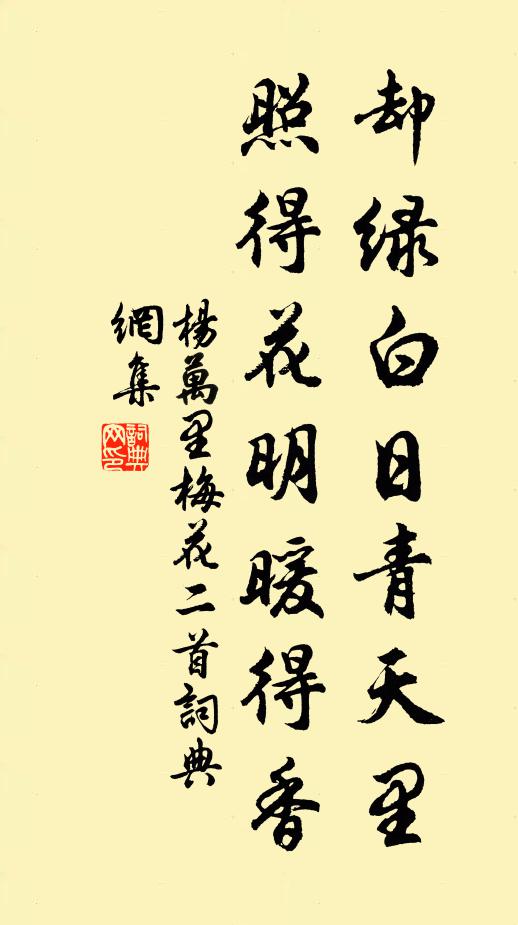 却绿白日青天里
照得花明暖得香
楊萬里梅花二首詞典
網集
詞典网印